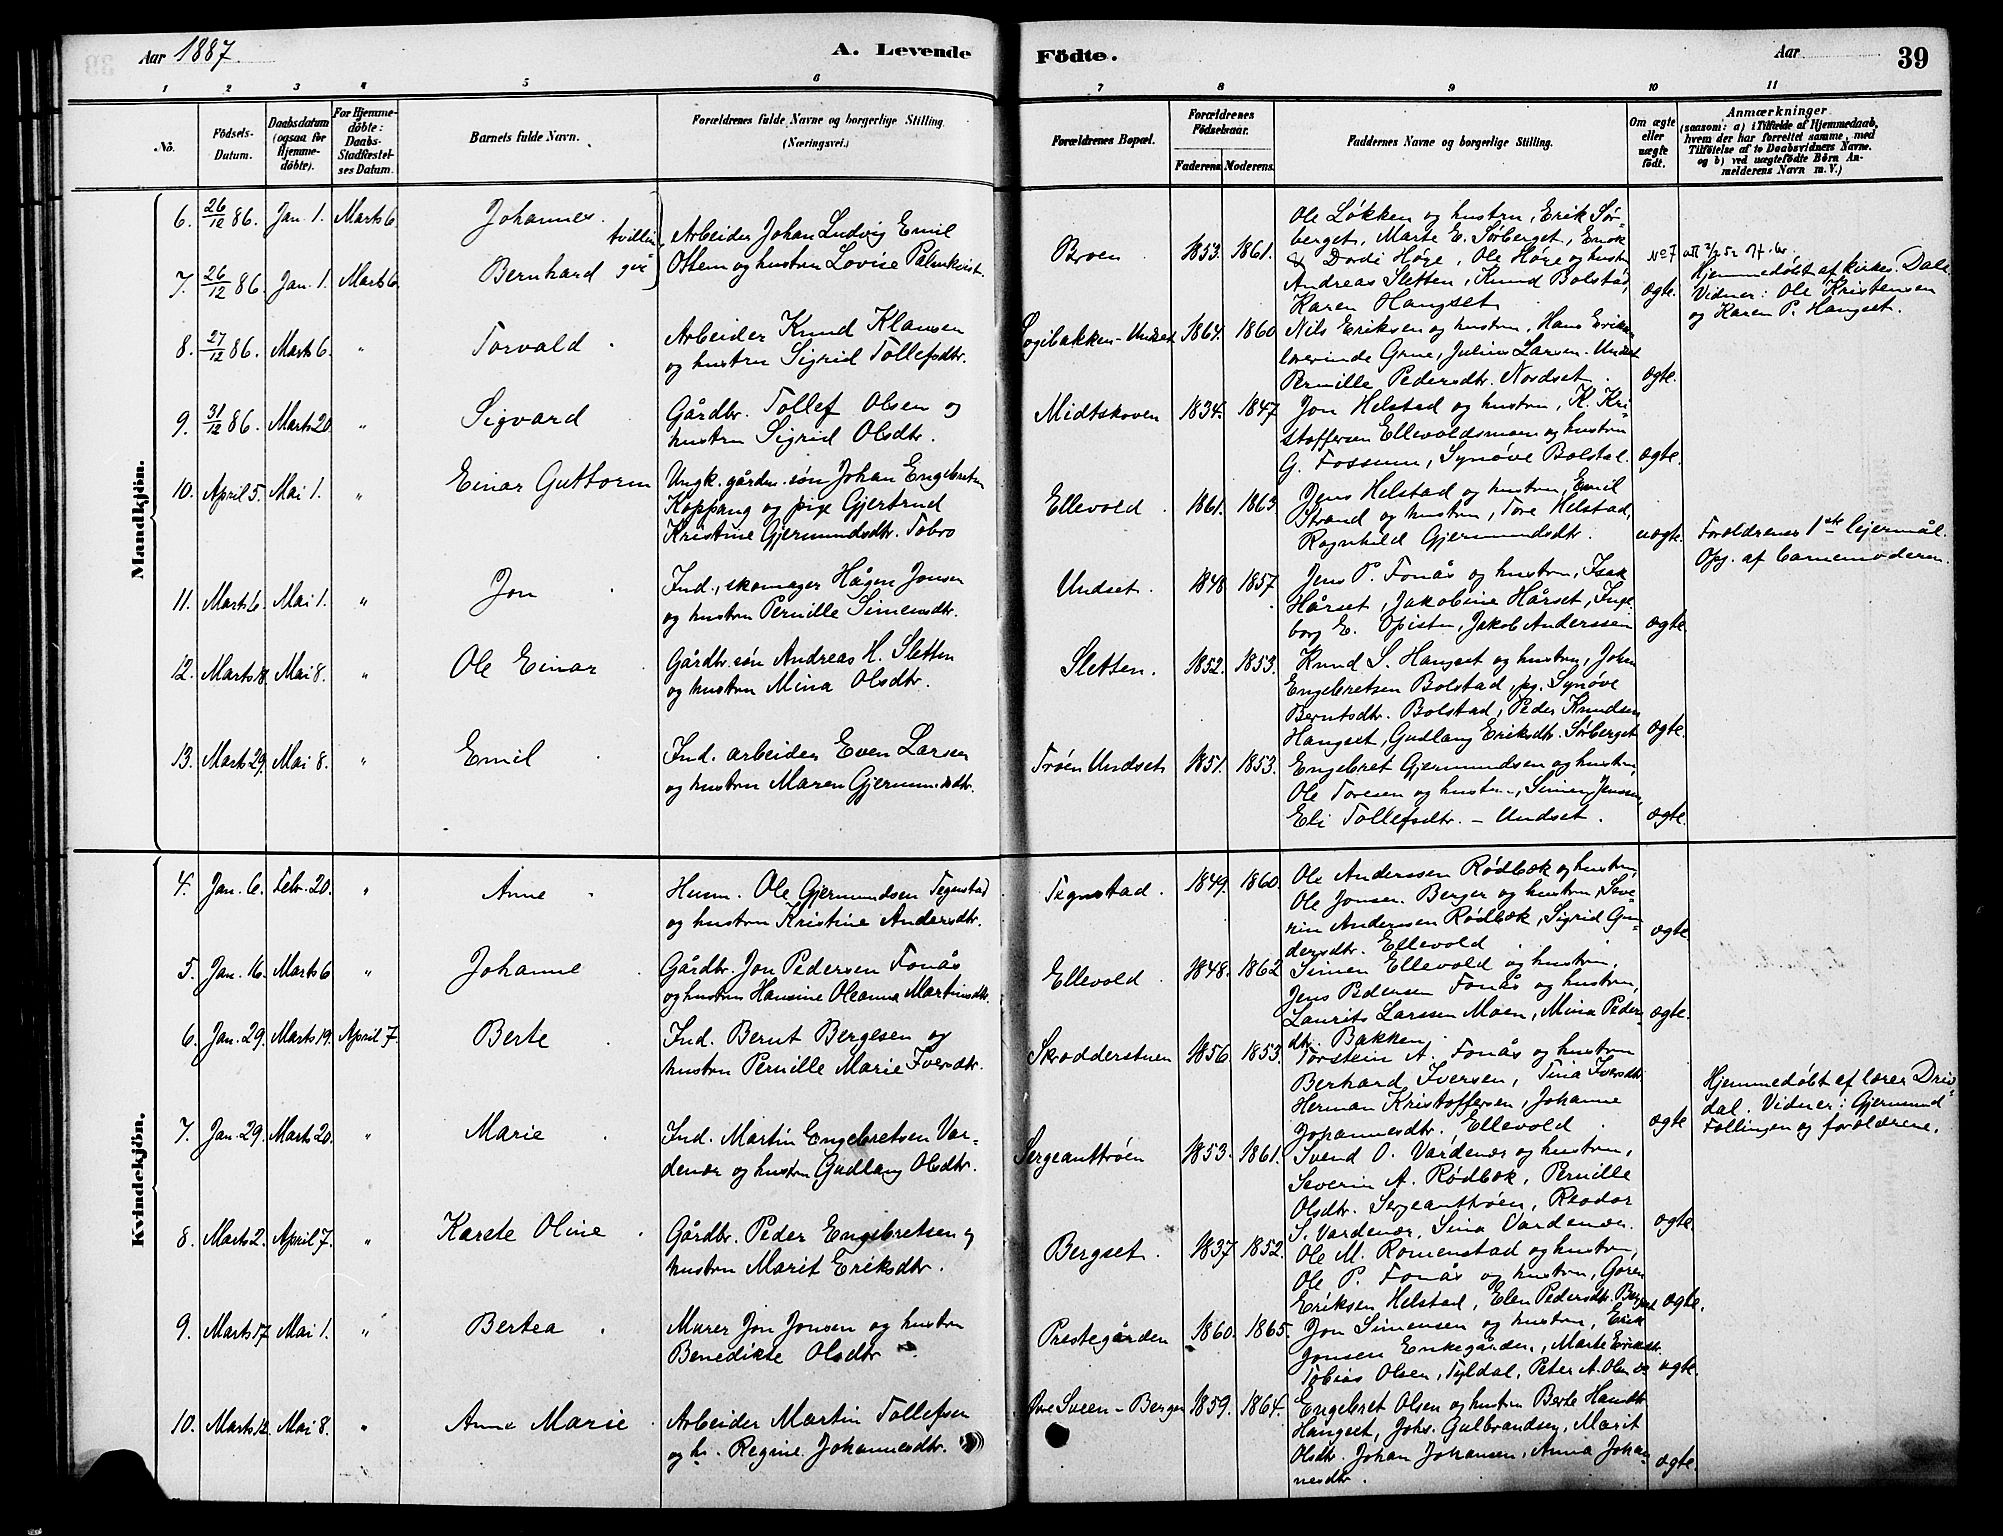 Aar 1887. A. Levende Födte. Aar 39
1 2 3 4 5 6 7 8 9 10 11
No. Födsels-Datum. Daabsdatum (ogsaa for Hjemmedöbte). For Hjemmedöbte: Daabs-Stadfæstelses Datum. Barnets fulde Navn. Forældrenes fulde Navne og borgerlige Stilling. (Næringsvei.) Forældrenes Bopæl. Forældrenes Födselsaar. Faderens. Moderens. Faddernes Navne og borgerlige Stilling. Om ægte eller uægte födt. Anmærkninger (saasom: a) i Tilfælde af Hjemmedaab, hvem der har forrettet samme, med Tilföielse af to Daabsvidners Navne. og b) ved uægtefödte Börn Anmelderens Navn m. V.)
Mandkjön.
6. 26/12 86. Jan. 1. Marts 6. Johannes.
7. 26/12 86. Jan. 1. Marts 6. Bernhard
Arbeider Johan Ludvig Emil
Ottem og hustru Lovise Palmkvist.
Broen 1853. 1861.
Ole Løkken og hustru, Erik Sør-
berget, Marte E. Sørberget, Enok
& Dordi Høye, Ole Høye og hustru
Andreas Sletten, Knud Bolstad,
Karen Hangset
ægte.
Hjemmedøbt af kirkes. Dale
Vidner: Ole Kristensen
og Karen P. Hangset.
8. 27/12 86. Marts 6. " Torvald
Arbeider Knud Klausen
og hustru Sigrid Tollefsdtr.
1864. 1860
Nils Eriksen og hustru, Hans Eriksen
Julius Larsen. Undset
Pernille Pedersdtr. Nordset.
ægte.
9. 31/12 86. Marts 20. " Sigvard
Gårdbr. Tollef Olsen og
hustru Sigrid Olsdtr.
Midtskoven 1834. 1847
Jon Helstad og hustru, K. Kri-
stoffersen Ellevoldsmoen og hustru
G. Fossum, Synøve Bolstad.
ægte.
10. April 5. Mai 1. " Einar Guttorm
Ungk. gårdm. søn Johan Engebretsen
Koppang og pige Gjertrud
Kristine Gjermundsdtr. Tobro
Ellevold. 1861. 1863
Jens Helstad og hustru, Emil
Strand og hustru, Tore Helstad,
Ragnhild Gjermundsdtr.
uægte.
Forældrenes 1ste lejermål.
Opg. af barnemoderen.
11. Marts 6. Mai 1. " Jon
Ind., skomager Hågen Jonsen
og hustru Pernille Simensdtr.
Undset. 1848 1857.
Jens P. Fonås og hustru, Isak
Hårset, Jakobine Hårset, Inge-
borg E. Opistu, Jakob Anderssen
ægte
12. Marts 18. Mai 8. " Ole Einar
Gårdbr. søn Andreas H. Sletten
og hustru Mina Olsdtr.
Sletten. 1852. 1853.
Knud S. Hangset og hustru, John
Engebretsen Bolstad, pg. Synøve
Berntsdtr. Bolstad, Peder Knudsen
Hangset, Gudlaug Eriksdtr. Sørberget
ægte.
13. Marts 29. Mai 8. " Emil
Ind. arbeider Even Larsen
og hustru Maren Gjermundsdtr.
Trøen Undset 1851. 1853.
Engebret Gjermundsen og hustru,
Ole Toresen og hustru, Simen Jensen,
Eli Tollefsdtr. – Undset.
ægte.
Kvindekjön.
4. Jan. 6. Febr. 20. " Anne
Husm. Ole Gjermundsen Tegnstad
og hustru Kristine Andersdtr.
Tegnstad. 1849. 1860.
Ole Anderssen Rødbæk og hustru,
Ole Jonsen Berger og hustru, Seve-
rin Anderssen Rødbæk, Sigrid Gun-
dersdtr. Ellevold
ægte
5. Jan. 16. Marts 6 " Johanne
Gårdbr. Jon Pedersen Fonås
og hustru Hansine Oleanna Martinsdtr.
Ellevold 1848. 1862
Simen Ellevold og hustru,
Jens Pedersen Fonås og hustru,
Laurits Larssen Moen, Mina Peders-
dtr. Bakken.
ægte.
6. Jan. 29. Marts 19. April 7. Berte
Ind. Bernt Bergesen og
hustru Pernille Marie Iversdtr.
Skrædderstuen 1856 1853.
Torstein A. Fonås og hustru
Berhard Iversen, Tina Iversdtr.
Herman Kristoffersen, Johanne
Johannesdtr. Ellevold
ægte
Hjemmedøbt af lærer Driv-
dal. Vidner: Gjermund
Tollingen og forældrene.
7. Jan. 29. Marts 20. " Marie
Ind. Martin Engebretsen Var-
denær og hustru Gudlaug Olsdtr.
Sergeanttrøen 1853. 1861.
Svend O. Vardenær og hustru,
Severin A. Rødbæk, Pernille
Olsdtr. Sergeanttrøen,
S. Vardenær, Sina Vardenær.
ægte
8. Marts 2. April 7. " Karete Oline
Gårdbr. Peder Engebretsen og
hustru Marit Eriksdtr.
Bergset. 1837 1852.
Ole M. Romenstad og hustru,
Ole P. Fonås og hustru, Goren
Eriksen Helstad, Elen Pedersdtr. Bergset
ægte.
9. Marts 17. Mai 1. " Bertea
Murer Jon Jonsen og hustru
Benedikte Olsdtr.
Prestegården 1860. 1865.
Jon Simensen og hustru, Erik
Jonsen Enkegården, Marte Eriksdtr.
Tobias Olsen, Tyldal, Peter A. Olsen
ægte.
10. Marts 12. Mai 8. " Anne Marie
Arbeider Martin Tollefsen
og h. Regine Johannesdtr.
Sveen – Berger 1859. 1864.
Engebret Olsen og hustru Berte
Hangset, Johs. Gulbrandsen, Marit
Olsdtr. Johan Johansen, Anna Johan-
nesdtr.
ægte.